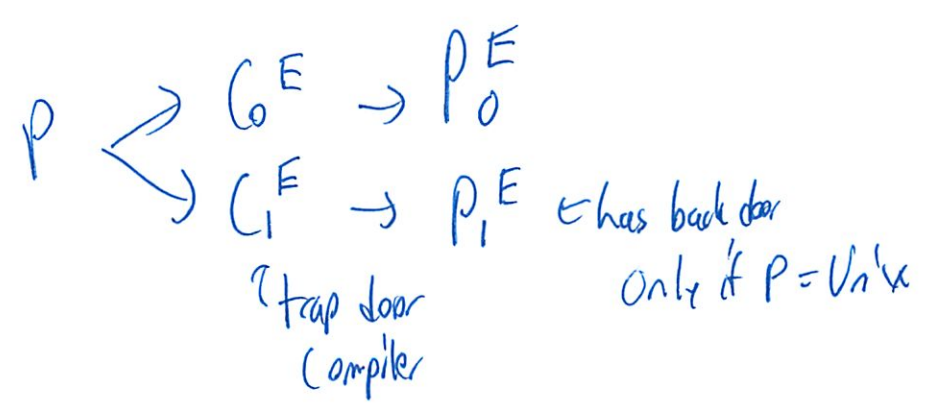 P C₀ᴱ → P₀ᴱ
C₁ᴱ → P₁ᴱ ← has back door
only if P = Unix
↑ trap door
Compiler